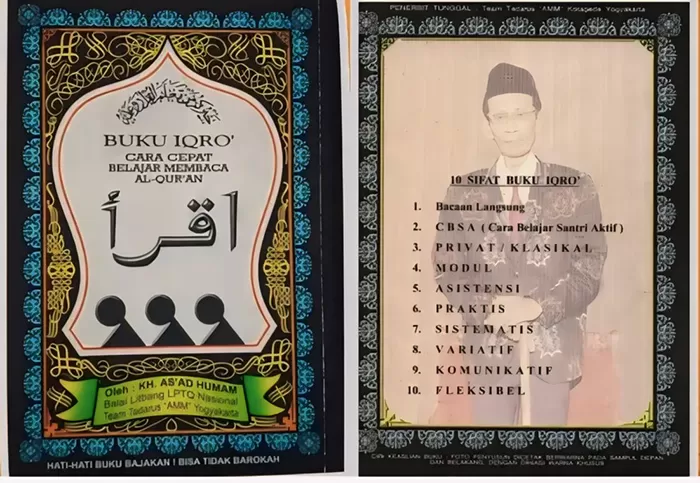 خيركم من تعلم القرآن وعلمه
BUKU IQRO'
CARA CEPAT
BELAJAR MEMBACA
AL-QUR'AN
اقرأ
Oleh : KH. AS'AD HUMAM
Balai Litbang LPTQ Nasional
Team Tadarus "AMM" Yogyakarta
HATI-HATI BUKU BAJAKAN ! BISA TIDAK BAROKAH
PENERBIT TUNGGAL : Team Tadarus "AMM" Kotagede Yogyakarta
10 SIFAT BUKU IQRO'
1. Bacaan Langsung
2. CBSA ( Cara Belajar Santri Aktif )
3. PRIVAT / KLASIKAL
4. MODUL
5. ASISTENSI
6. PRAKTIS
7. SISTEMATIS
8. VARIATIF
9. KOMUNIKATIF
10. FLEKSIBEL
CIRI KEASLIAN BUKU : FOTO PENYUSUN DICETAK BERWARNA PADA SAMPUL DEPAN
DAN BELAKANG, DENGAN DIBASI WARNA KHUSUS